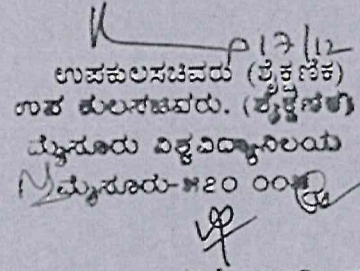 17/12
ಉಪಕುಲಸಚಿವರು (ಶೈಕ್ಷಣಿಕ)
ಉಪ ಕುಲಸಚಿವರು. (ಶೈಕ್ಷಣಿಕ)
ಮೈಸೂರು ವಿಶ್ವವಿದ್ಯಾನಿಲಯ
ಮೈಸೂರು-೫೭೦ ೦೦೫